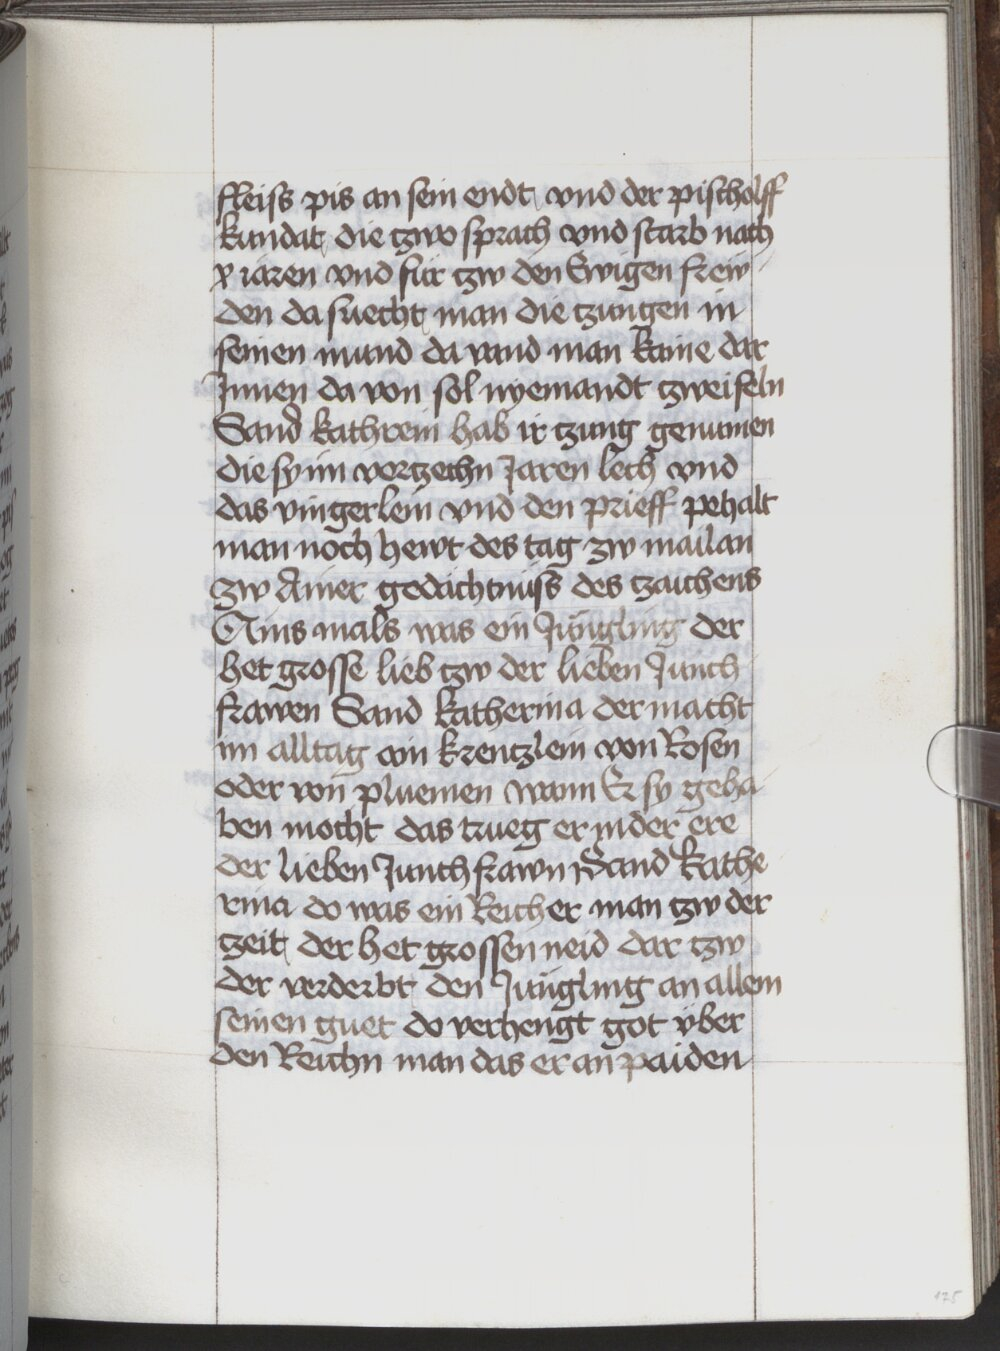 fleiss pis an sein endt vnd der pischolff
kundat die tzwo sprach vnd starb nach
x iaren vnd fur tzw den Ewigen frew
den da suecht man die tzungen in
seinen mund da vand man kaine dar
Innen da von sol nyemandt tzweifeln
Sand kathrein hab ir tzung genumen
die sy im vertzechn Jaren lech vnd
das vingerlein vnd den prieff pehalt
man noch hewt des tag zw mailan
zw Ainer gedachtnuss des tzaichens
Ains mals was ein Jungling der
het grosse lieb tzw der lieben Junch
frawen Sand katherina der macht
im alltag ain krentzlein von Rosen
oder von pluemen wann Er sy geha
ben mocht das trueg er in der ere
der lieben Junchfrawn Sand kathe
rina do was ein Reicher man tzw der
tzeit der het grossen neid dar tzw
der verderbt den Jungling an allem
seinen guet do verhengt got vber
den Reichn man das er an paiden
175